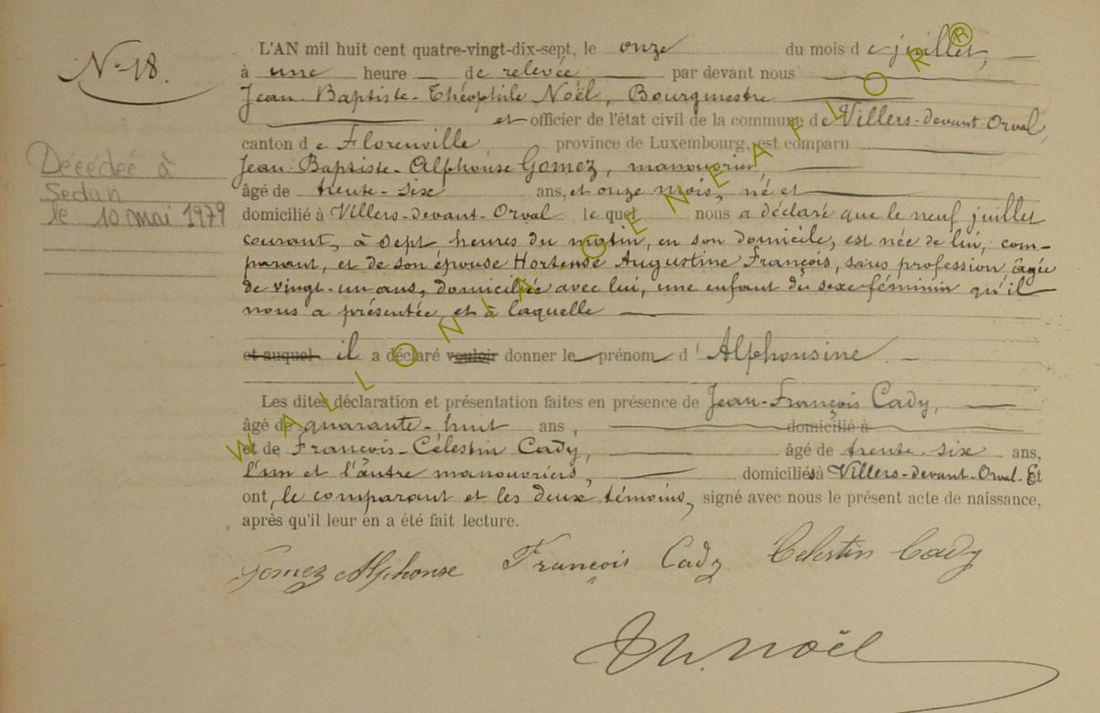 N° 18.
L'AN mil huit cent quatre-vingt-dix-sept, le onze du mois de juillet,
à une heure de relevée par devant nous
Jean-Baptiste-Théophile Noël, Bourgmestre
et officier de l'état civil de la commune de Villers-devant-Orval,
canton de Florenville province de Luxembourg, est comparu
Jean-Baptiste-Alphonse Gomez, manouvrier,
âgé de trente-six ans, et onze mois, né et
domicilié à Villers-devant-Orval le quel nous a déclaré que le neuf juillet
courant, à sept heures du matin, en son domicile, est née de lui, com-
parant, et de son épouse Hortense Augustine François, sans profession âgée
de vingt-un ans, domiciliée avec lui, une enfant du sexe féminin qu'il
nous a présentée, et à laquelle
et auquel il a déclaré vouloir donner le prénom d'Alphonsine.
Les dites déclaration et présentation faites en présence de Jean-François Cady,
âgé de quarante-huit ans, domicilié à
et de François-Célestin Cady, âgé de trente-six ans,
l'un et l'autre manouvriers, domiciliés à Villers-devant-Orval. Et
ont, le comparant et les deux témoins, signé avec nous le présent acte de naissance,
après qu'il leur en a été fait lecture.
Gomez Alphonse François Cady Celestin Cady
Th. Noël
Décédée à
Sedan
le 10 mai 1979
WALLONIA GENEAFLOR®